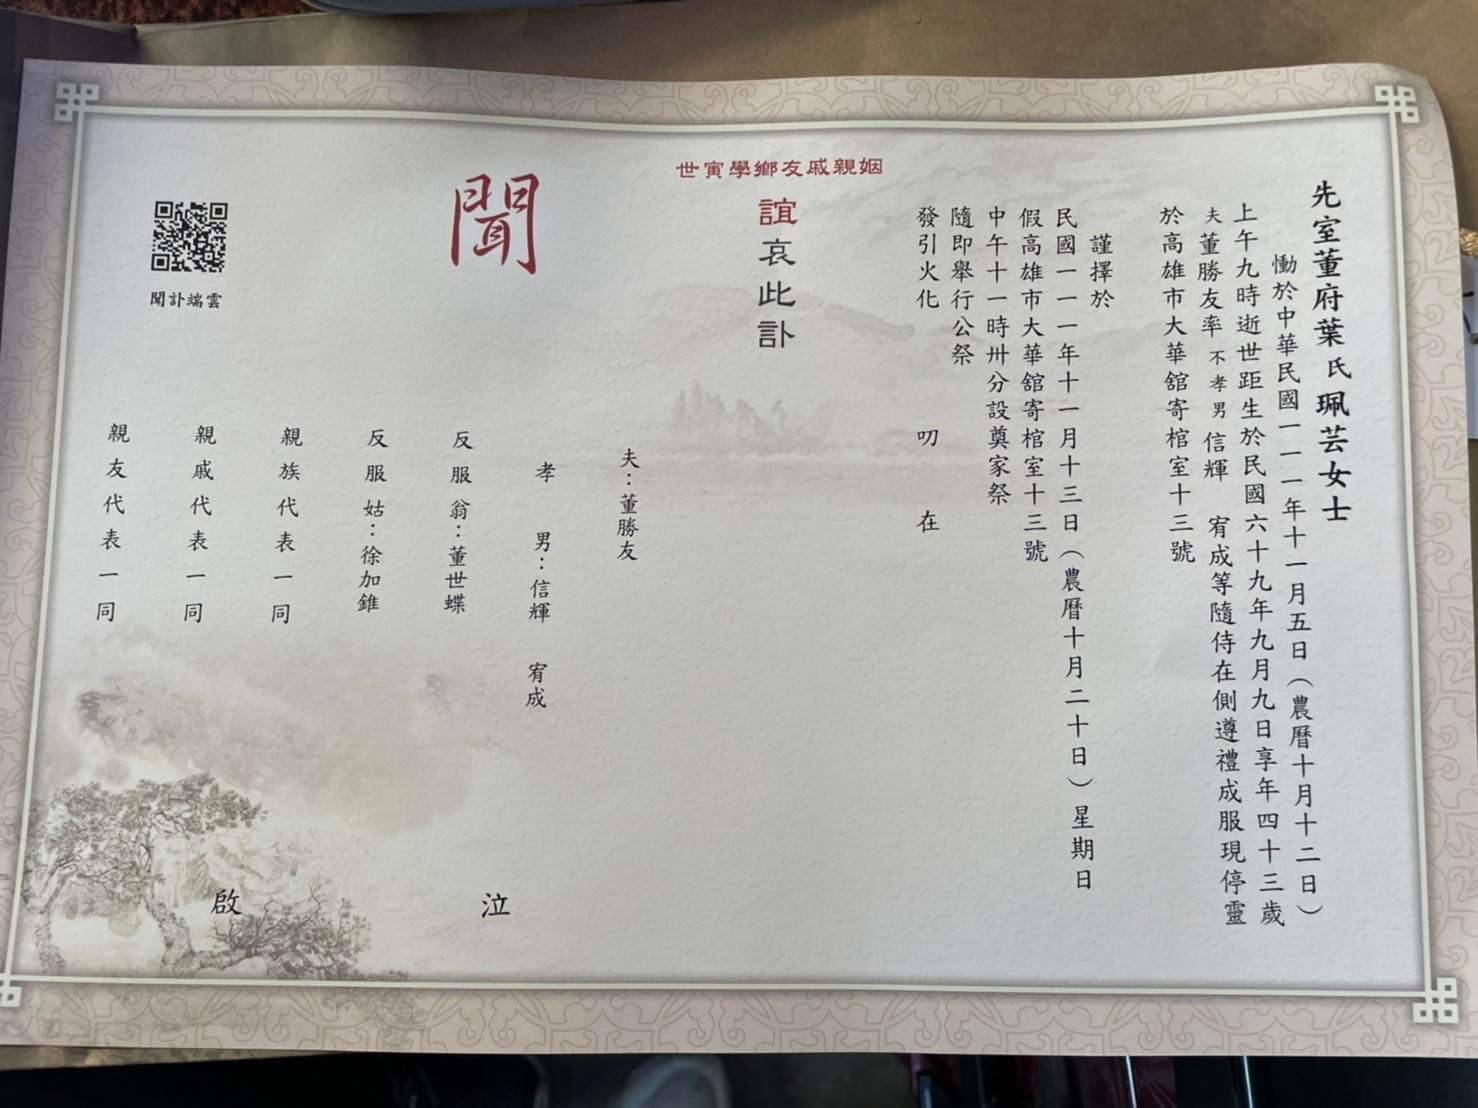 先室董府葉氏珮芸女士
慟於中華民國一一一年十一月五日（農曆十月十二日）
上午九時逝世距生於民國六十九年九月九日享年四十三歲
夫董勝友率不孝男信輝 宥成等隨侍在側遵禮成服現停靈
於高雄市大華舘寄棺室十三號
謹擇於
民國一一一年十一月十三日（農曆十月二十日）星期日
假高雄市大華舘寄棺室十三號
中午十一時卅分設奠家祭
隨即舉行公祭
發引火化 叨在
世寅學鄉友戚親姻
誼哀此訃
聞
夫：董勝友
孝男：信輝 宥成
反服翁：董世蝶
反服姑：徐加錐
親族代表一同
親戚代表一同
親友代表一同
泣
啟
聞訃端雲